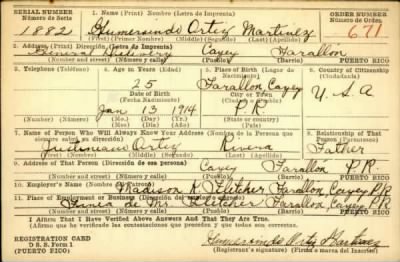 SERIAL NUMBER 1. Name (Print) (Nombre) (Letra de Imprenta) ORDER NUMBER
Número de Serie Número de Orden
1882 Gumersindo Ortiz Martinez 671
(First) (Primer Nombre) (Middle) (Segundo) (Last) (Apellido)
2. Address (Print) Dirección (Letra de Imprenta)
General Delivery Cayey Farallon PUERTO RICO
(Number and street) (Número y calle) (Town) (Pueblo) (Barrio) (Barrio)
3. Telephone (Teléfono) 4. Age in Years (Edad) 5. Place of Birth (Lugar de Nacimiento) 6. Country of Citizenship (Ciudadanía)
25 Farallon, Cayey
Date of Birth City or Town
(Fecha Nacimiento) (Ciudad o Pueblo) U.S.A
Jan 13 1914 P.R.
(Mo.) (Day) (Yr.) State or country
7. Name of Person Who Will Always Know Your Address (Nombre de la Persona que siempre sabrá su dirección) 8. Relationship of That Person (Parentesco)
Ortiz Rivera Father
(First) (Primer Nombre) (Middle) (Segundo) (Last) (Apellido)
9. Address of That Person (Dirección de esa persona)
Cayey Farallon P.R.
(Number and street) (Número y calle) (Town) (Pueblo) (Barrio) (Barrio) PUERTO RICO
10. Employer's Name (Nombre del Patrono)
Madison K. Fletcher Farallon, Cayey P.R.
11. Place of Employment or Business (Dirección del empleo o negocio)
Finca de Mr. Fletcher Farallon, Cayey P.R.
(Number and street) (Número y calle) (Town) (Pueblo) (Barrio) (Barrio) PUERTO RICO
I Affirm That I Have Verified Above Answers And That They Are True.
(Afirmo que he verificado las contestaciones que preceden y que todas son correctas.
REGISTRATION CARD
D. S. S. Form 1 Gumersindo Ortiz Martinez
Registrant's signature (Firma del inscrito)